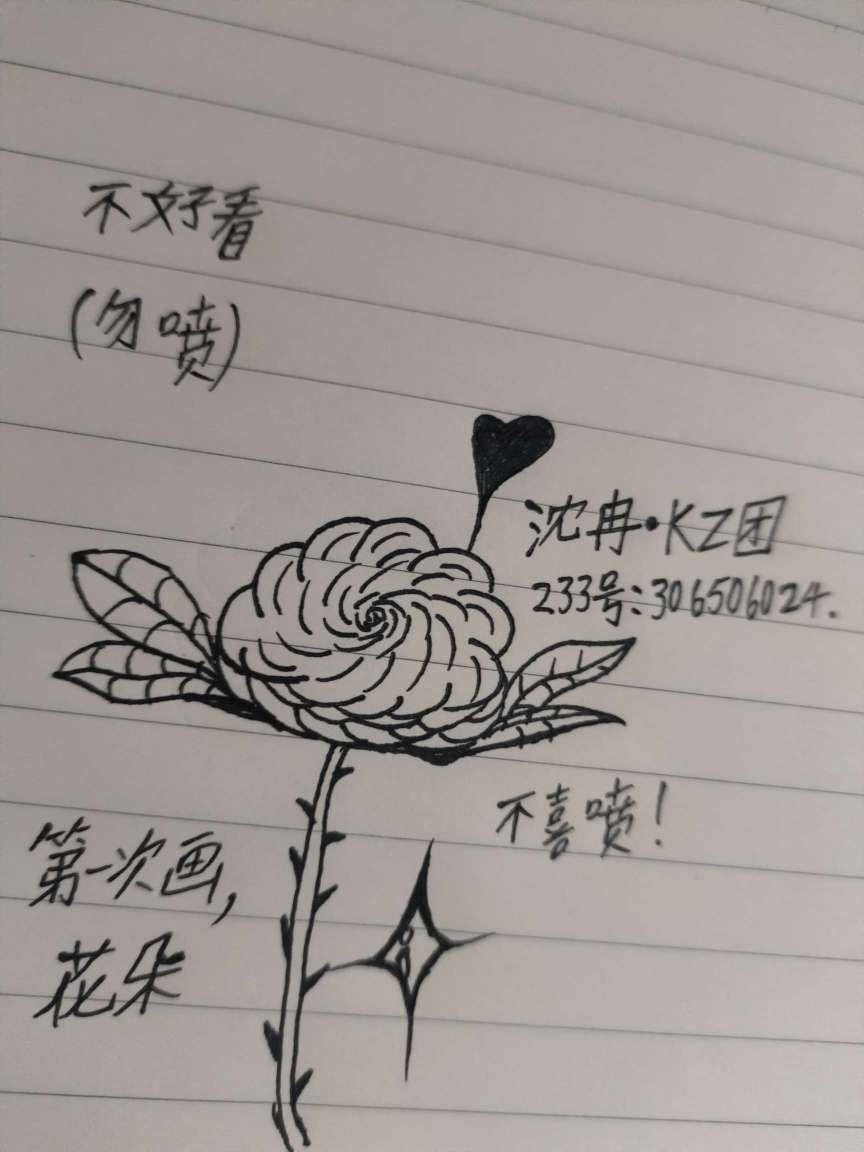 不好看
(勿喷)
沈冉·KZ团
233号:306506024.
不喜喷!
第一次画,
花朵